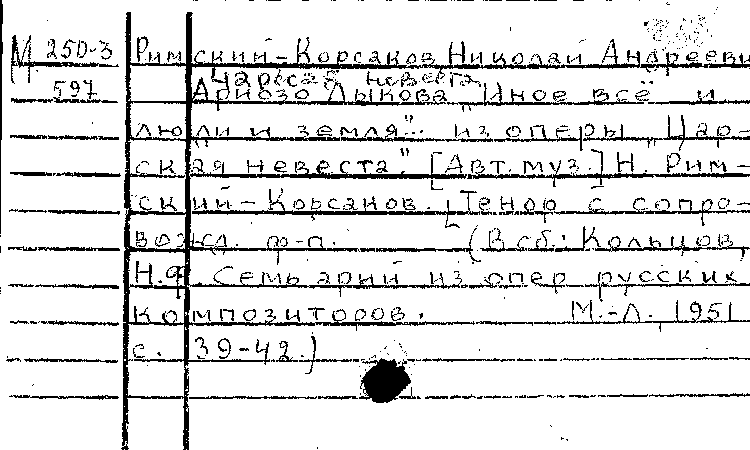 М 250-3 Римский-Корсаков Николай Андреевич
Царская невеста
597 Ариозо Лыкова "Иное всё и
люди и земля": из оперы „Цар-
ская невеста". [Авт. муз.] Н. Рим-
ский-Корсаков. [Тенор с сопро-
вожд. ф-п. (В сб.: Кольцов,
Н.Ф. Семь арий из опер русских
композиторов. М.-Л. 1951
с. 39-42.)